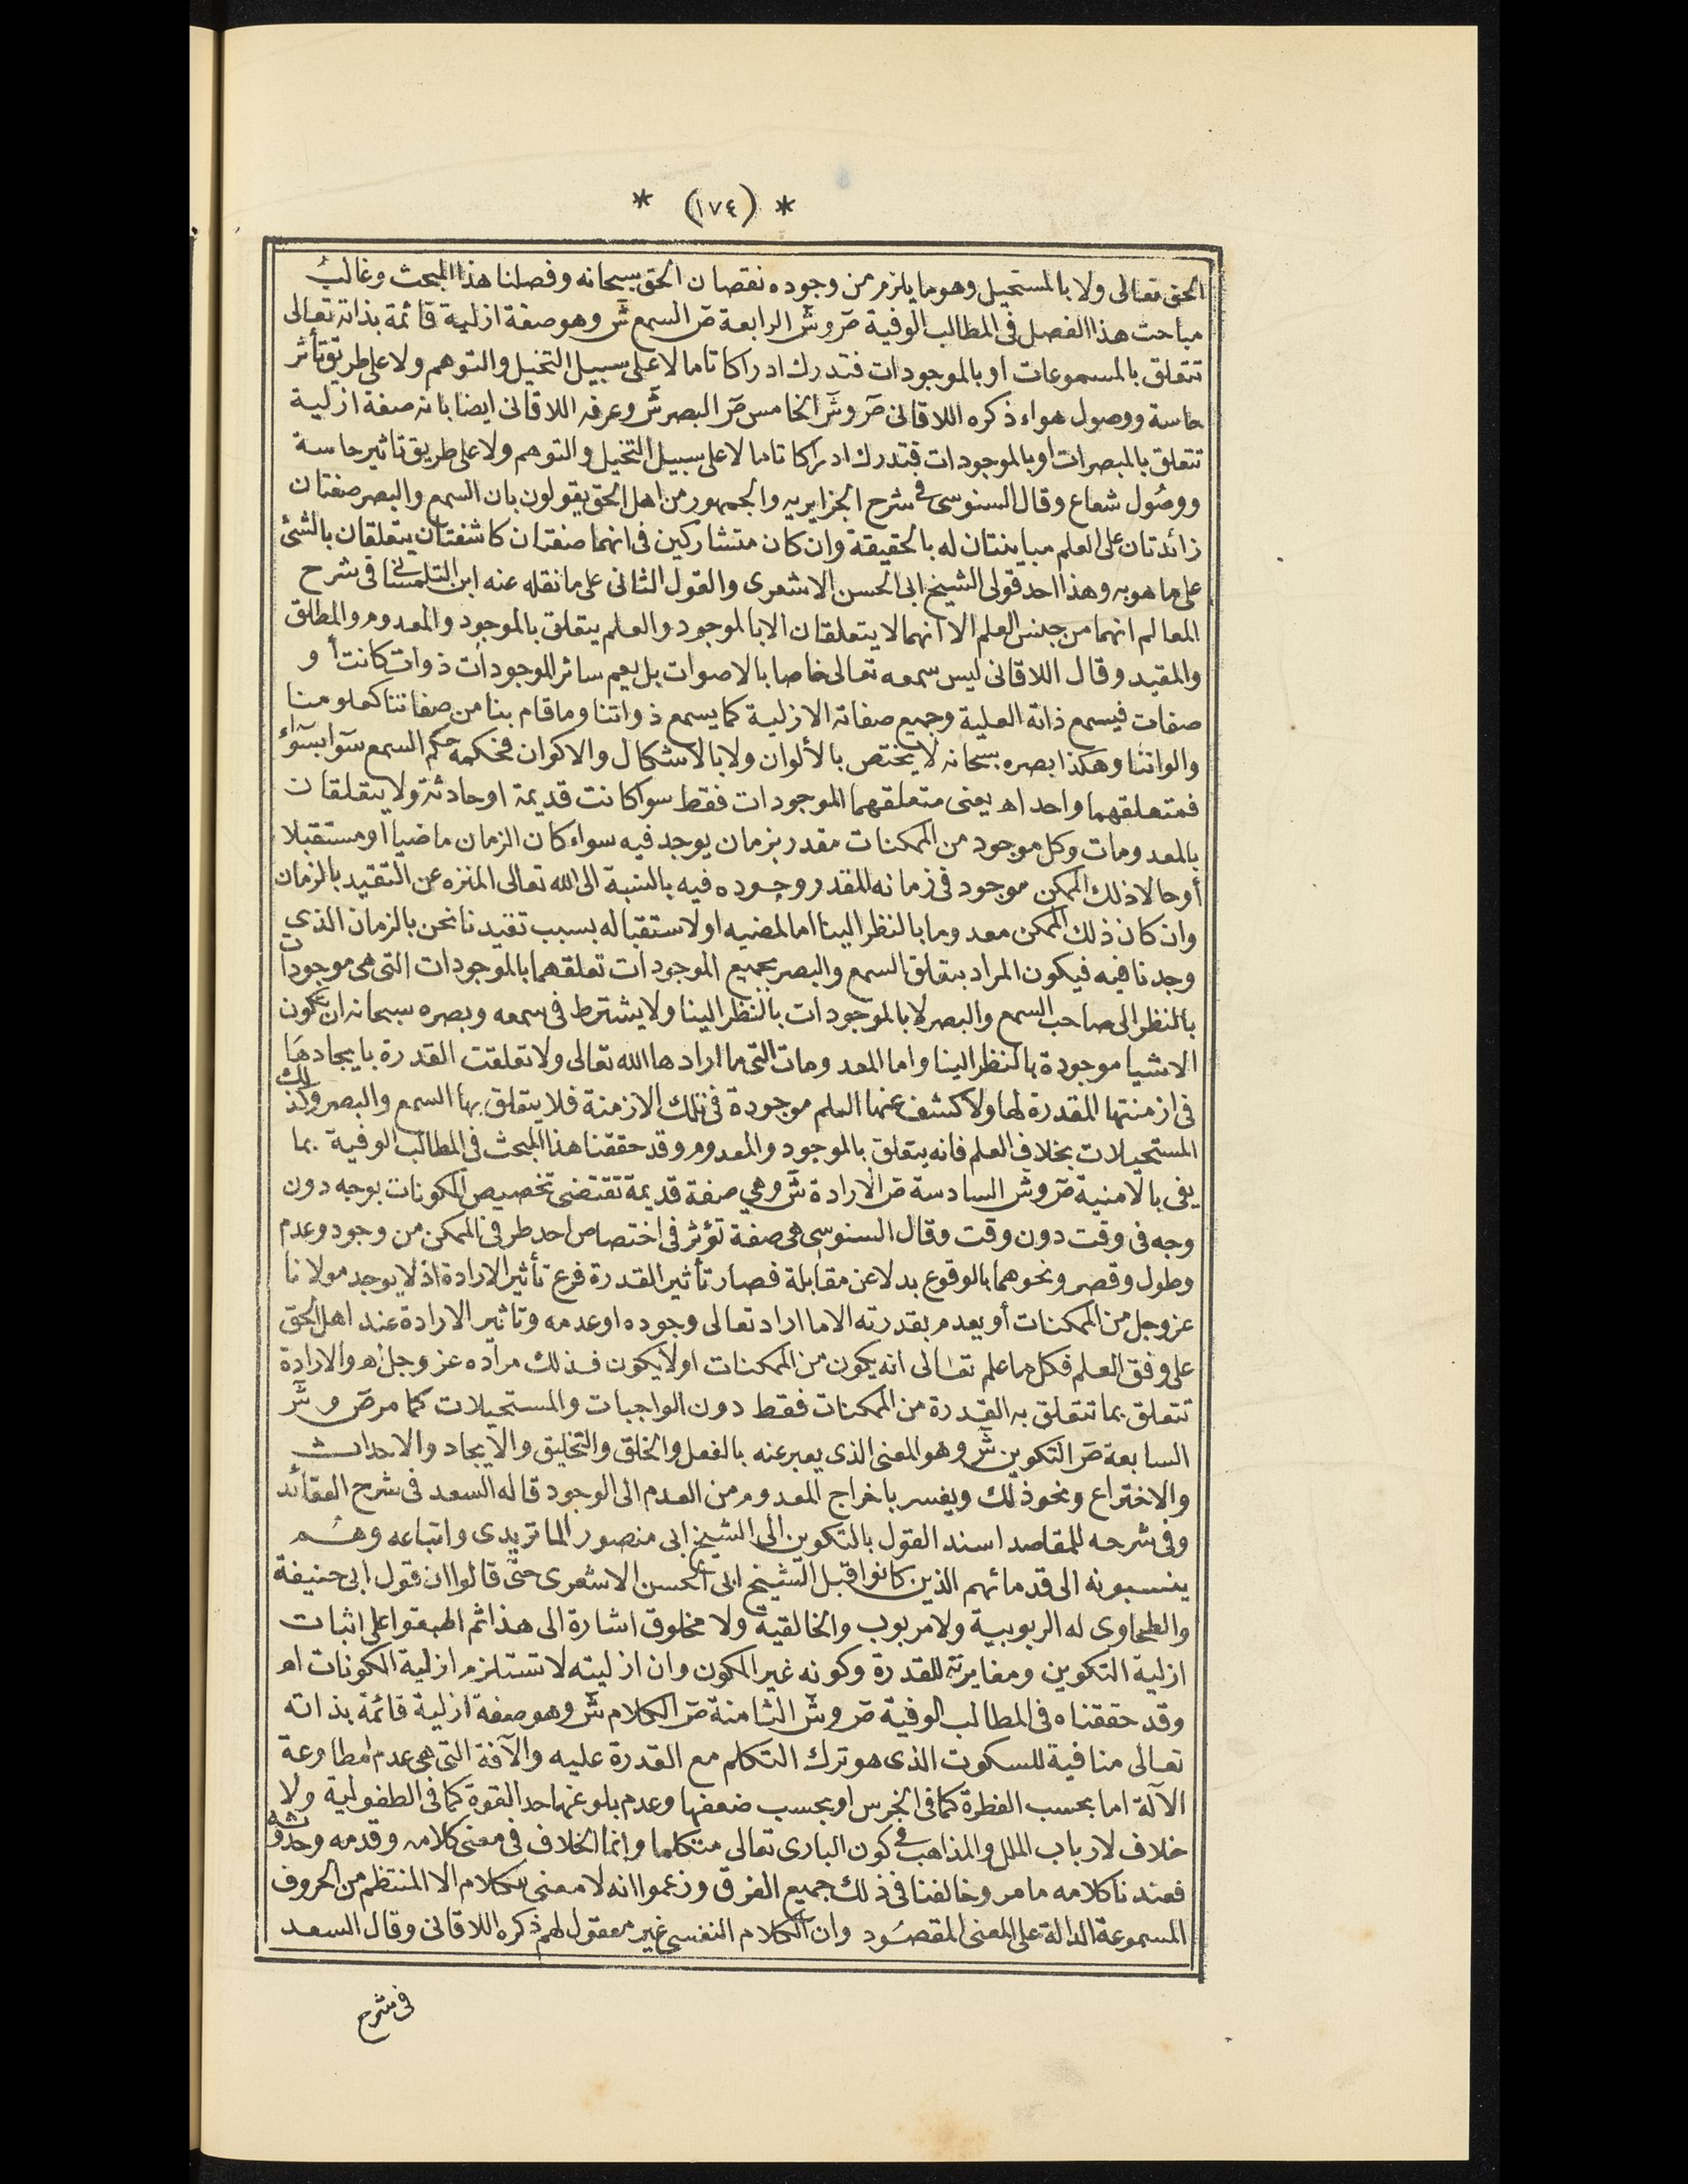 * (١٧٤) *
الحق تعالى ولا بالمستحيل وهو ما يلزم من وجوده نقصان الحق سبحانه وفصلنا هذا المبحث وغالب
مباحث هذا الفصل فى المطالب الوفية صۤ وشۤ الرابعة صۤ السمع شۤ وهو صفة ازلية قائمة بذاته تعالى
تتعلق بالمسموعات او بالموجودات فتدرك ادراكا تاما لا على سبيل التخيل والتوهم ولا على طريق تأثر
حاسة ووصول هواء ذكره اللاقانى صۤ وشۤ الخامس صۤ البصر شۤ وعرفه اللاقانى ايضا بانه صفة ازلية
تتعلق بالمبصرات او بالموجودات فتدرك ادراكا تاما لا على سبيل التخيل والتوهم ولا على طريق تاثير حاسة
ووصُول شعاع وقال السنوسى فى شرح الجزايريه والجمهور من اهل الحق يقولون بان السمع والبصر صفتان
زائدتان على العلم مباينتان له بالحقيقة وان كان متشاركين فى انهما صفتان كاشفتان يتعلقان بالشئ
على ما هو به وهذا احد قولى الشيخ ابى الحسن الاشعرى والقول الثانى على ما نقله عنه ابن التلمسانى فى شرح
المعالم انهما من جنس العلم الا انهما لا يتعلقان الا بالموجود والعلم يتعلق بالموجود والمعدوم والمطلق
والمقيد وقال اللاقانى ليس سمعه تعالى خاصا بالاصوات بل يعم سائر الموجودات ذوات كانت أو
صفات فيسمع ذاته العلية وجميع صفاته الازلية كما يسمع ذواتنا وما قام بنا من صفاتنا كعلومنا
والواننا وهكذا بصره سبحانه لا يختص بالألوان ولا بالاشكال والاكوان فحكمه حكم السمع سواء بسواء
فمتعلقهما واحد اه يعنى متعلقهما الموجودات فقط سوا كانت قديمة او حادثة ولا يتعلقان
بالمعدومات وكل موجود من الممكنات مقدر بزمان يوجد فيه سواء كان الزمان ماضيا او مستقبلا
أو حالا ذلك الممكن موجود فى زمانه المقدر وجوده فيه بالنسبة الى الله تعالى المنزه عن التقيد بالزمان
وان كان ذلك الممكن معدوما بالنظر الينا اما لمضيه او لاستقباله بسبب تقيدنا نحن بالزمان الذى
وجدنا فيه فيكون المراد بتعلق السمع والبصر بجميع الموجودات تعلقهما بالموجودات التى هى موجودات
بالنظر الى صاحب السمع والبصر لا بالموجودات بالنظر الينا ولا يشترط فى سمعه وبصره سبحانه ان تكون
الاشيا موجودة بالنظر الينا واما المعدومات التى ما ارادها الله تعالى ولا تعلقت القدرة بايجادها
فى ازمنتها المقدرة لها ولا كشف عنها العلم موجودة فى تلك الازمنة فلا يتعلق بها السمع والبصر وكذلك
المستحيلات بخلاف العلم فانه يتعلق بالموجود والمعدوم وقد حققنا هذا المبحث فى المطالب الوفية بما
يفى بالامنية صۤ وشۤ السادسة صۤ الارادة شۤ وهى صفة قديمة تقتضى تخصيص المكونات بوجه دون
وجه فى وقت دون وقت وقال السنوسى هى صفة تؤثر فى اختصاص احد طرفى الممكن من وجود وعدم
وطول وقصر ونحوهما بالوقوع بدلا عن مقابلة فصار تأثير القدرة فرع تأثير الارادة اذ لا يوجد مولانا
عز وجل من الممكنات أو يعدم بقدرته الا ما اراد تعالى وجوده او عدمه وتاثير الارادة عند اهل الحق
على وفق العلم فكل ما علم تعالى انه يكون من الممكنات او لا يكون فذلك مراده عز وجل اه والارادة
تتعلق بما تتعلق به القدرة من الممكنات فقط دون الواجبات والمستحيلات كما مر صۤ وشۤ
السابعة صۤ التكوين شۤ وهو المعنى الذى يعبر عنه بالفعل والخلق والتخليق والايجاد والاحداث
والاختراع ونحو ذلك ويفسر باخراج المعدوم من العدم الى الوجود قاله السعد فى شرح العقائد
وفى شرحه للمقاصد اسند القول بالتكوين الى الشيخ ابى منصور الماتريدى واتباعه وهُم
ينسبونه الى قدمائهم الذين كانوا قبل الشيخ ابى الحسن الاشعرى حتى قالوا ان قول ابى حنيفة
والطحاوى له الربوبية ولا مربوب والخالقية ولا مخلوق اشارة الى هذا ثم اطبقوا على اثبات
ازلية التكوين ومغايرته للقدرة وكونه غير المكون وان ازليته لا تستلزم ازلية المكونات اه
وقد حققناه فى المطالب الوفية صۤ وشۤ الثامنة صۤ الكلام شۤ وهو صفة ازلية قائمة بذاته
تعالى منافية للسكوت الذى هو ترك التكلم مع القدرة عليه والآفة التى هى عدم مطاوعة
الآلة اما بحسب الفطرة كما فى الخرس او بحسب ضعفها وعدم بلوغها حد القوة كما فى الطفولية ولا
خلاف لارباب الملل والمذاهب فى كون البارى تعالى متكلما وانما الخلاف فى معنى كلامه وقدمه وحدوثه
فعندنا كلامه ما مر وخالفنا فى ذلك جميع الفرق وزعموا انه لا معنى للكلام الا المنتظم من الحروف
المسموعة الدالة على المعنى المقصُود وان الكلام النفسى غير معقول لهم ذكره اللاقانى وقال السعد
فى شرح